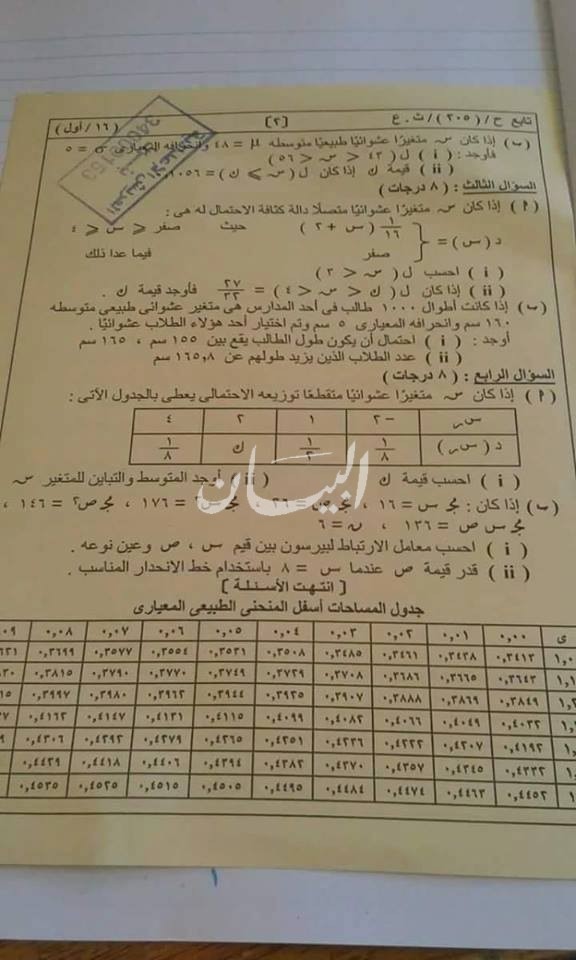 تابع ح/ (٢٠٥)/ث.ع [٢] (١٦/أول)
(ب) إذا كان س متغيرًا عشوائيًا طبيعيًا متوسطه μ = ٤٨ وانحرافه المعيارى σ = ٥
فأوجد : (i) ل (٤٣ < س < ٥٦)
(ii) قيمة ك إذا كان ل (س ⩽ ك) = ٠,١٠٥٦
السؤال الثالث : (٨ درجات)
(أ) إذا كان س متغيرًا عشوائيًا متصلًا دالة كثافة الاحتمال له هى :
د (س) = { ١/١٦ (س + ٢) حيث صفر ⩽ س ⩽ ٤
صفر فيما عدا ذلك
(i) احسب ل (س < ٣)
(ii) إذا كان ل (ك < س < ٤) = ٢٧/٣٢ فأوجد قيمة ك .
(ب) إذا كانت أطوال ١٠٠٠ طالب فى أحد المدارس هى متغير عشوائى طبيعى متوسطه
١٦٠ سم وانحرافه المعيارى ٥ سم وتم اختيار أحد هؤلاء الطلاب عشوائيًا .
أوجد : (i) احتمال أن يكون طول الطالب يقع بين ١٥٥ سم ، ١٦٥ سم
(ii) عدد الطلاب الذين يزيد طولهم عن ١٦٥,٨ سم
السؤال الرابع : (٨ درجات)
(أ) إذا كان س متغيرًا عشوائيًا متقطعًا توزيعه الاحتمالى يعطى بالجدول الآتى :
س ر -٢ ١ ٢ ٤
د (س ر) ١/٨ ١/٢ ك ١/٨
(i) احسب قيمة ك (ii) أوجد المتوسط والتباين للمتغير س
البيان
(ب) إذا كان : مجـ س = ١٦ ، مجـ ص = ٢٦ ، مجـ س٢ = ١٧٦ ، مجـ ص٢ = ١٤٦ ،
مجـ س ص = ١٣٦ ، ن = ٦
(i) احسب معامل الارتباط لبيرسون بين قيم س ، ص وعين نوعه .
(ii) قدر قيمة ص عندما س = ٨ باستخدام خط الانحدار المناسب .
[ انتهت الأسئلة ]
جدول المساحات أسفل المنحنى الطبيعى المعيارى
ى ٠,٠٠ ٠,٠١ ٠,٠٢ ٠,٠٣ ٠,٠٤ ٠,٠٥ ٠,٠٦ ٠,٠٧ ٠,٠٨
١,٠ ٠,٣٤١٣ ٠,٣٤٣٨ ٠,٣٤٦١ ٠,٣٤٨٥ ٠,٣٥٠٨ ٠,٣٥٣١ ٠,٣٥٥٤ ٠,٣٥٧٧ ٠,٣٦٩٩
٠,٣٦٤٣ ٠,٣٦٦٥ ٠,٣٦٨٦ ٠,٣٧٠٨ ٠,٣٧٢٩ ٠,٣٧٤٩ ٠,٣٧٧٠ ٠,٣٧٩٠ ٠,٣٨١٥
٠,٣٨٤٩ ٠,٣٨٦٩ ٠,٣٨٨٨ ٠,٣٩٠٧ ٠,٣٩٢٥ ٠,٣٩٤٤ ٠,٣٩٦٢ ٠,٣٩٨٠ ٠,٣٩٩٧
٠,٤٠٣٢ ٠,٤٠٤٩ ٠,٤٠٦٦ ٠,٤٠٨٢ ٠,٤٠٩٩ ٠,٤١١٥ ٠,٤١٣١ ٠,٤١٤٧ ٠,٤١٦٢
٠,٤١٩٢ ٠,٤٢٠٧ ٠,٤٢٢٢ ٠,٤٢٣٦ ٠,٤٢٥١ ٠,٤٢٦٥ ٠,٤٢٧٩ ٠,٤٢٩٢ ٠,٤٣٠٦
٠,٤٣٣٢ ٠,٤٣٤٥ ٠,٤٣٥٧ ٠,٤٣٧٠ ٠,٤٣٨٢ ٠,٤٣٩٤ ٠,٤٤٠٦ ٠,٤٤١٨ ٠,٤٤٢٩
٠,٤٤٥٢ ٠,٤٤٦٣ ٠,٤٤٧٤ ٠,٤٤٨٤ ٠,٤٤٩٥ ٠,٤٥٠٥ ٠,٤٥١٥ ٠,٤٥٢٥ ٠,٤٥٣٥